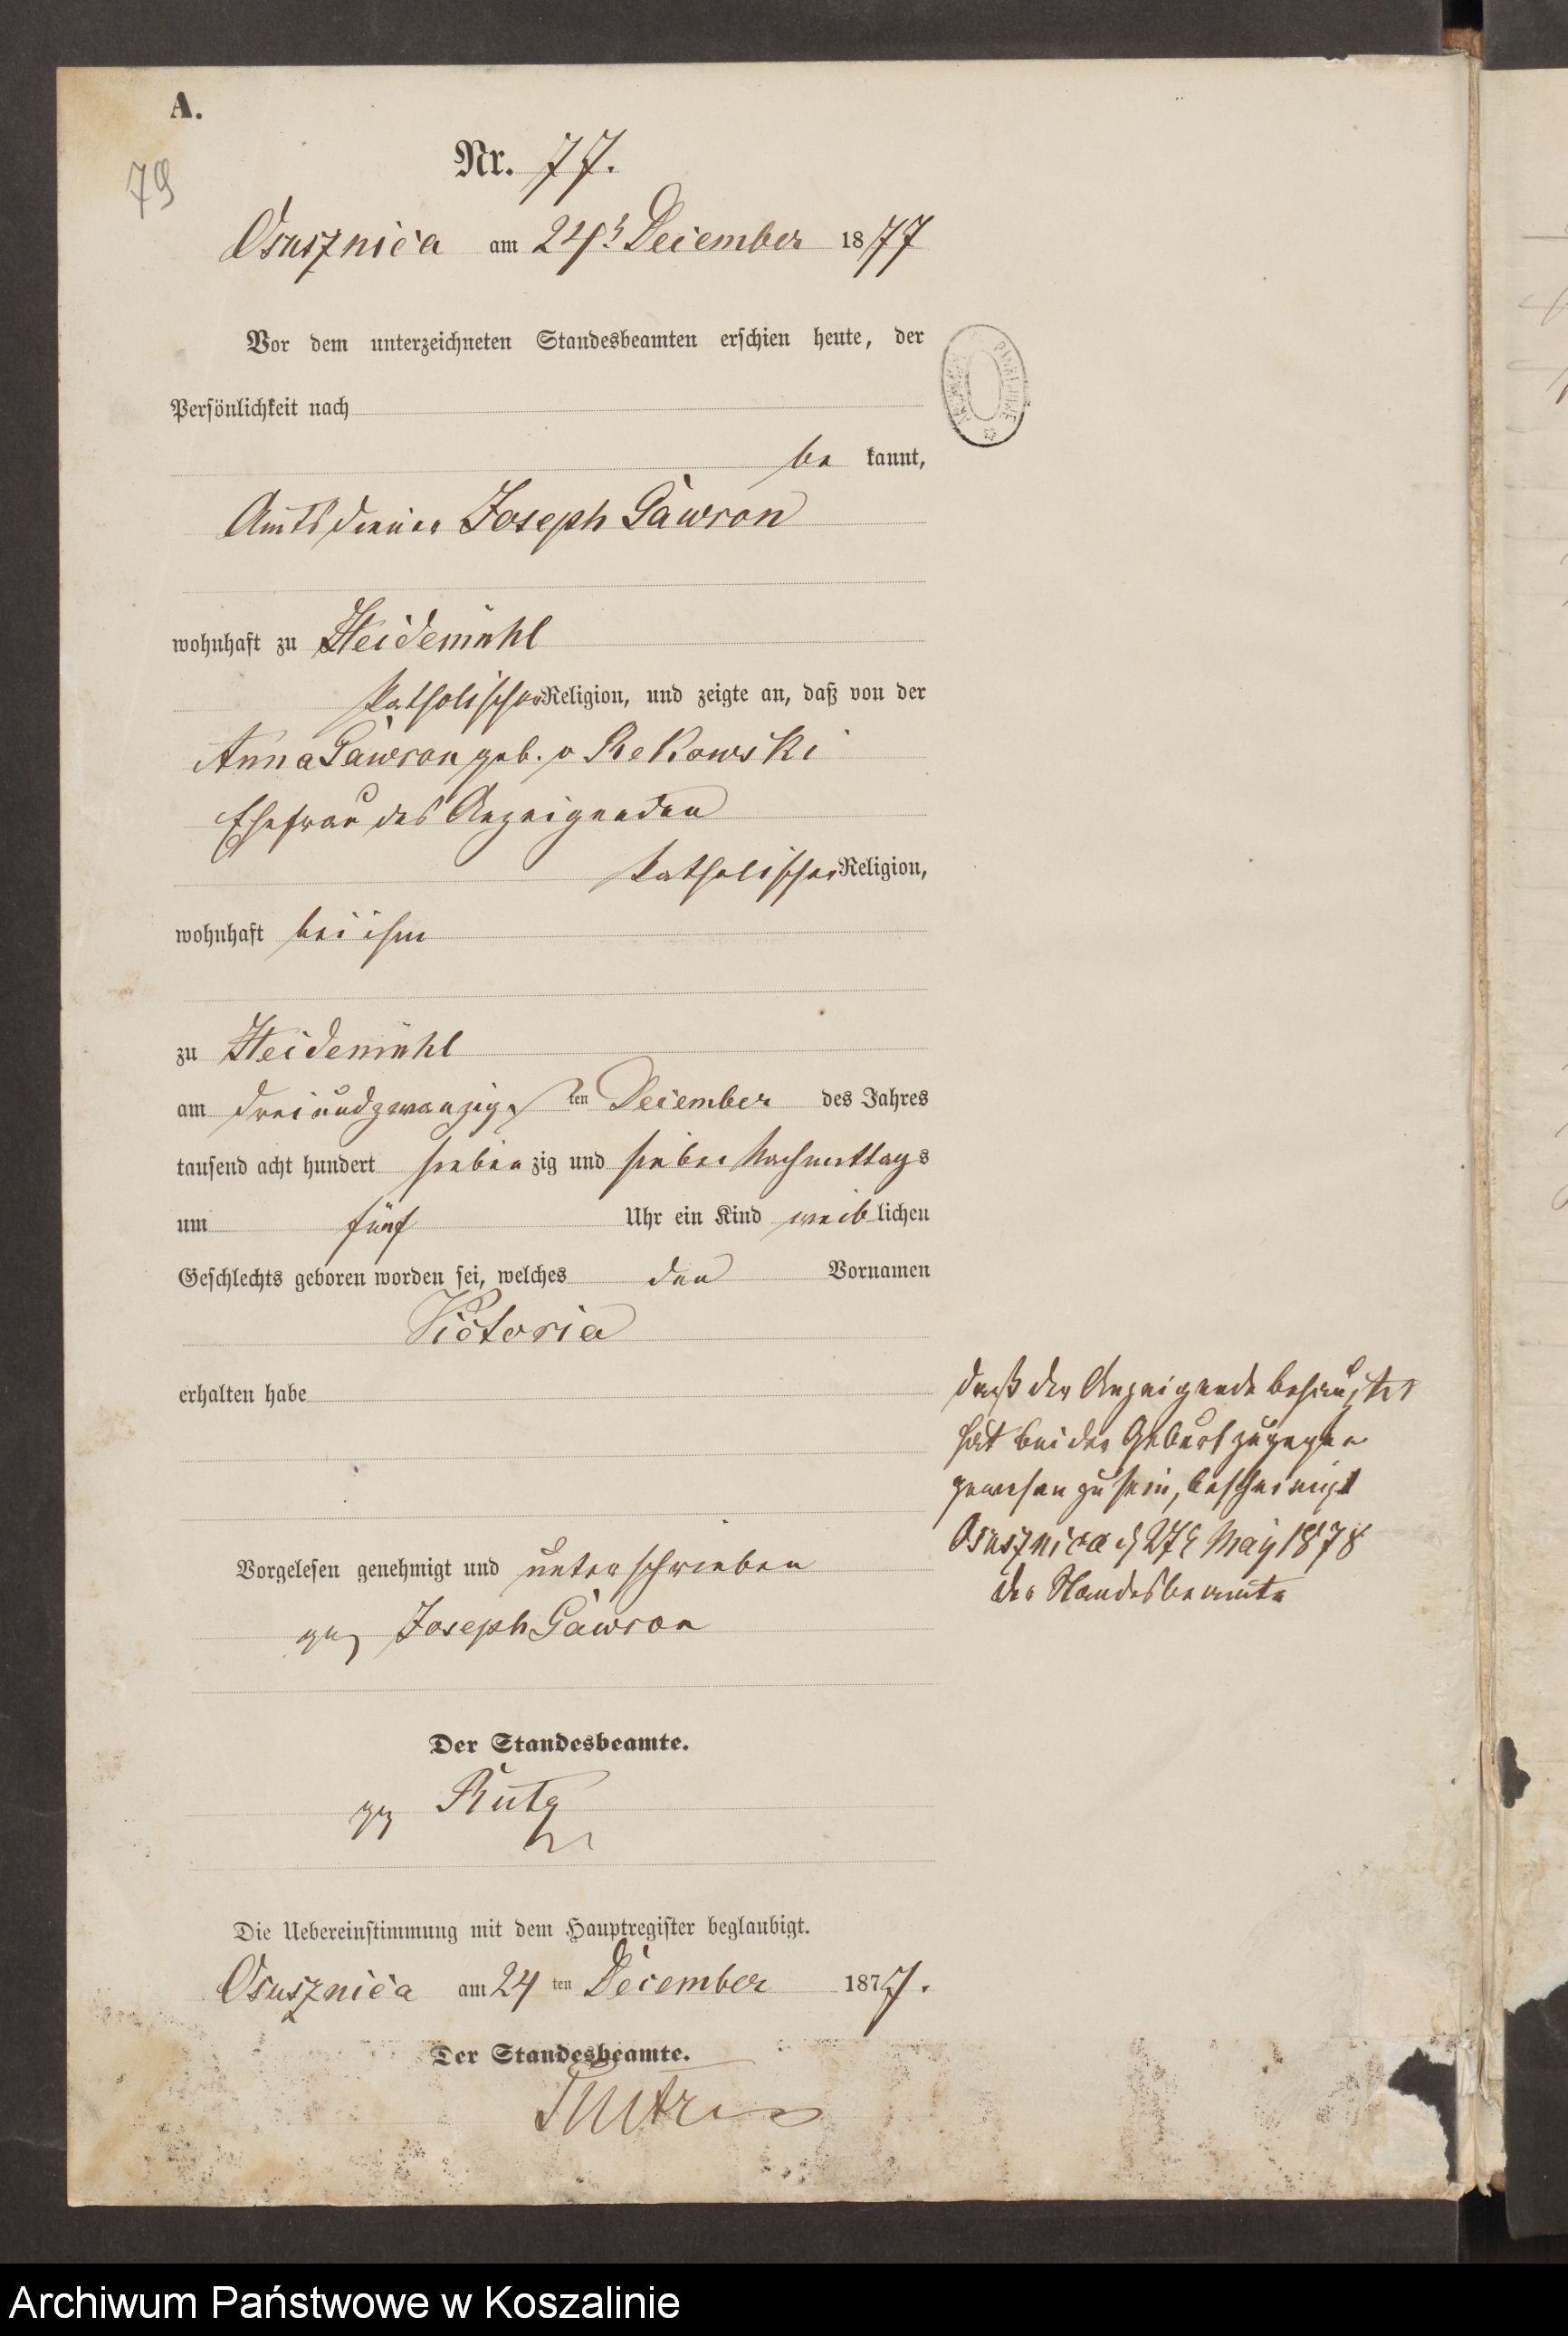 A.
79
Nr. 77.
Osusznica am 24t December 1877
Vor dem unterzeichneten Standesbeamten erschien heute, der
Persönlichkeit nach
be kannt,
Amtsdiener Joseph Gawron
wohnhaft zu Heidemühl
katholischer Religion, und zeigte an, daß von der
Anna Gawron geb. v Rekowski
Ehefrau des Anzeigenden
katholischer Religion,
wohnhaft bei ihm
zu Heidemühl
am dreiundzwanzigsten December des Jahres
tausend acht hundert siebenzig und sieben Nachmittags
um fünf Uhr ein Kind weiblichen
Geschlechts geboren worden sei, welches den Vornamen
Victoria
erhalten habe
daß der Anzeigende
hat bei der Geburt zugegen
gewesen zu sein, bescheinigt
Osusznica d 27t May 1878
der Standesbeamte
Vorgelesen genehmigt und unterschrieben
gez Joseph Gawron
Der Standesbeamte.
gez
Die Uebereinstimmung mit dem Hauptregister beglaubigt.
Osusznica am 24 ten December 1877.
Der Standesbeamte.
Archiwum Państwowe w Koszalinie